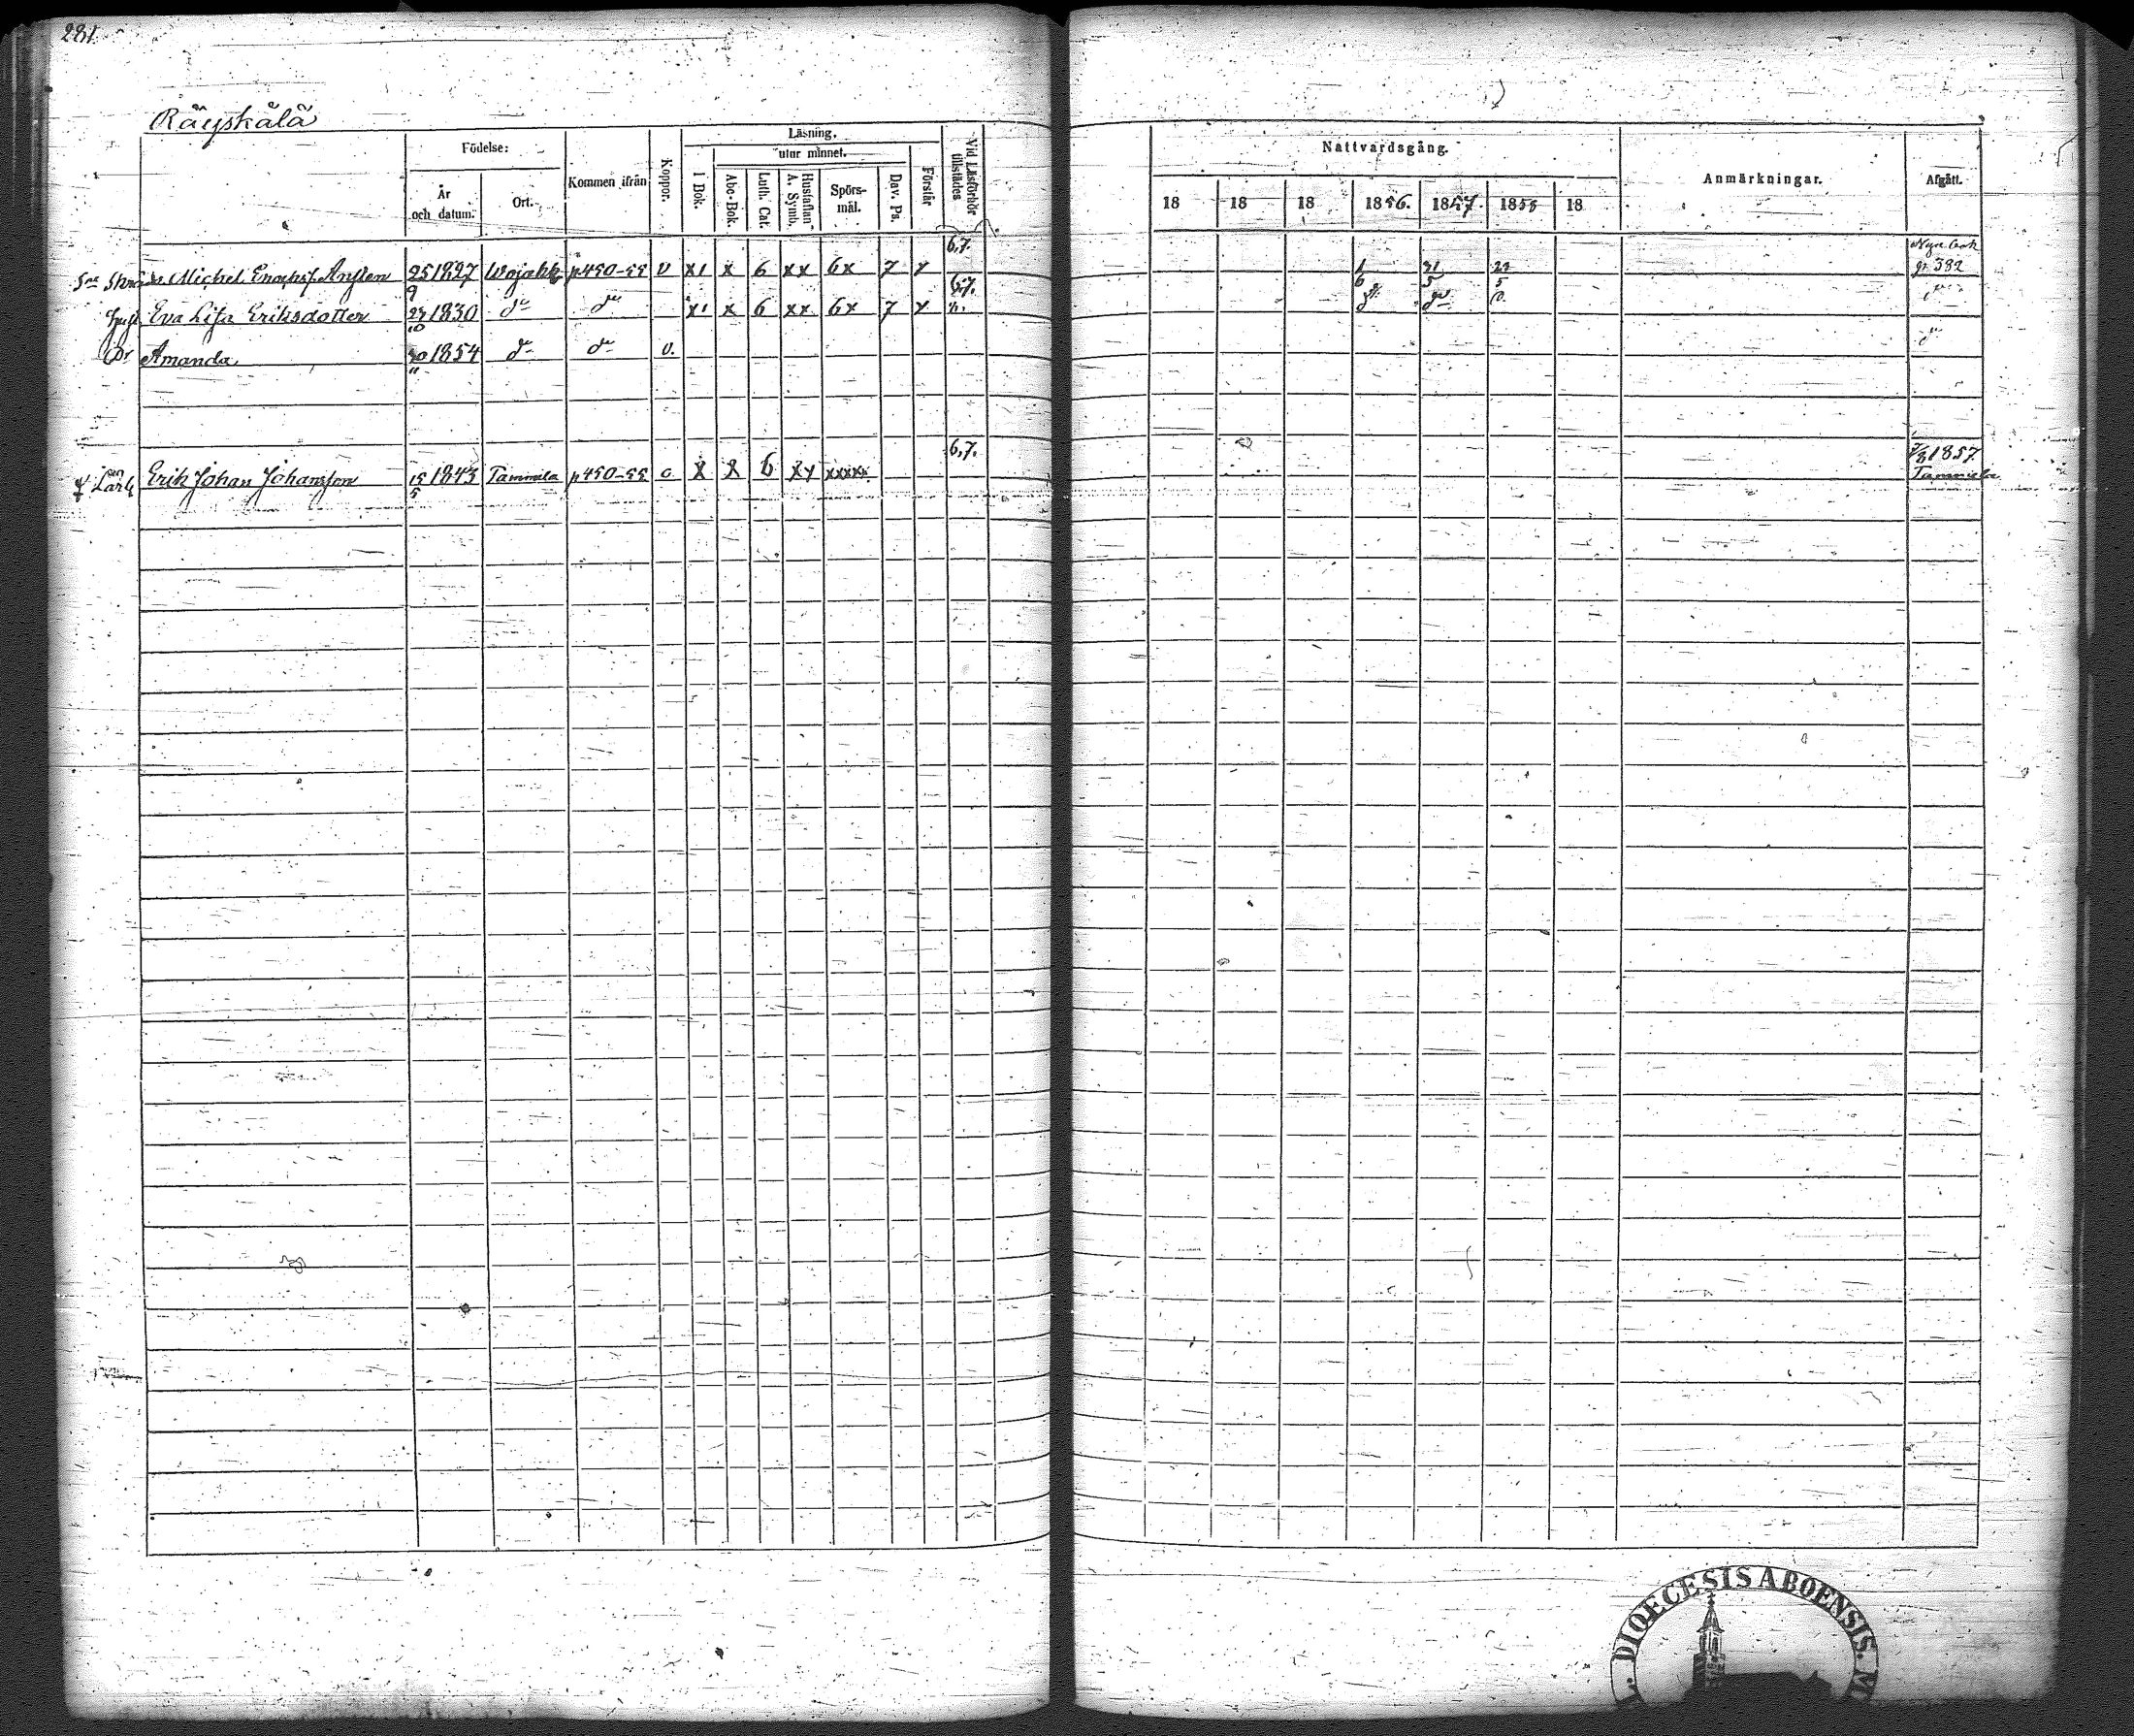 281
Räyskälä
Födelse:
År och datum.
Ort.
Kommen ifrån
Koppor.
Läsning.
utur minnet.
I Bok.
Abc-Bok.
Luth. Cat.
Hustaflan A. Symb.
Spörs-mål.
Dav. Ps.
Förstår
Vid Läsförhör tillstädes
Nattvardsgång.
18 18 18 1856. 1857. 1855 18
Anmärkningar.
Afgått.
Michel 25/9 1827 Wojakk p450-55 v x1 x 6 xx 6x 7 x 6,7. 1/6 31/5 22/5 382
Eva Lisa Eriksdotter 27/10 1830 do do x1 x 6 xx 6x 7 x 6,7. do do do
Dr Amanda 30/11 1854 do do v. do
Erik Johan Johansson 15/5 1843 Tammela p450-55 X X 6 xx xxxxx 6,7. 1857 Tammela
DIOECESIS ABOENSIS. M